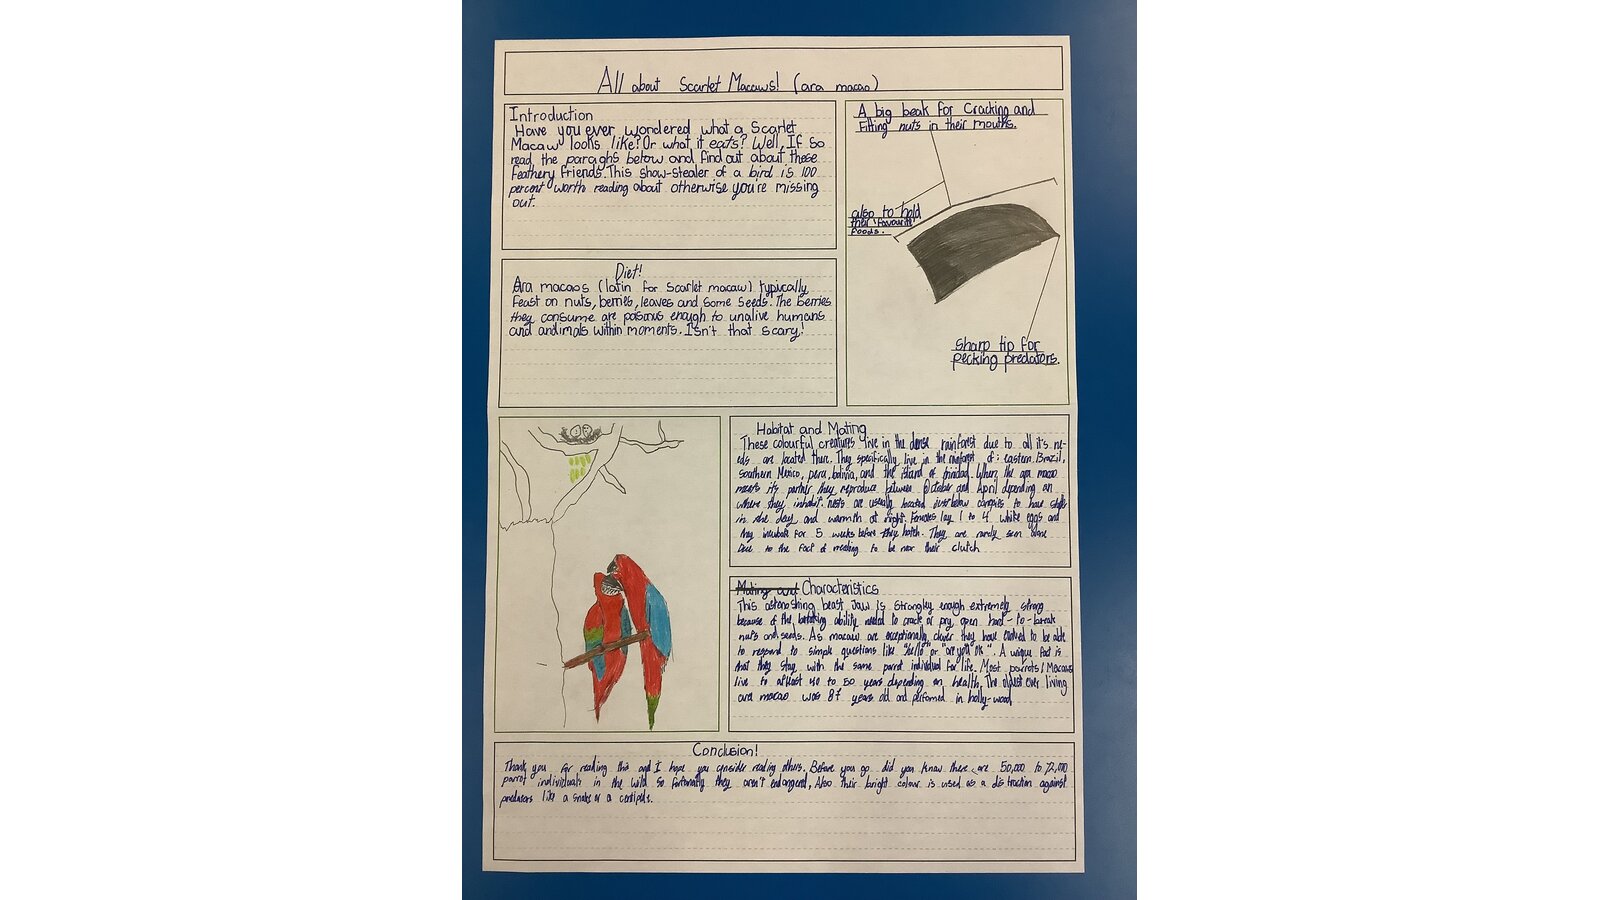 All about Scarlet Macaws! (ara macao)
Introduction
Have you ever wondered what a Scarlet
Macaw looks like? Or what it eats? Well, If so
read the paraghs below and find out about these
feathery friends. This show-stealer of a bird is 100
percent worth reading about otherwise you're missing
out.
A big beak for Cracking and
Fitting nuts in their mouths.
also to hold
their favourite
foods.
Sharp tip for
pecking predators.
Diet!
Ara macaos (latin for Scarlet macaw) typically
feast on nuts, berries, leaves and some seeds. The berries
they consume are poisonus enough to unalive humans
and andimals within moments. Isn't that scary!
Habitat and Mating
These colourful creatures live in the dense rainforest due to all it's ne-
eds are located there. They specifically live in the rainforest of: eastern Brazil,
Southern Mexico, peru, bolivia, and the island of trinidad. When the ara macao
meets its partner they reproduce between October and April depending on
where they inhabit. Nests are usually located just below canopies to have
in the day and warmth at night. Females lay 1 to 4 white eggs and
they incubate for 5 weeks before they hatch. They are rarely seen alone
Due to the fact of needing to be near their clutch
Mating and Characteristics
This astonoshing beast Jaw is Strongley enough extremely strong
because of the ability needed to crack or pry open hard-to-break
nuts and seeds. As macaw are exceptionally clever they have evolved to be able
to respond to simple questions like "hello" or "are you ok". A unique fact is
that they stay with the same parrot individual for life. Most parrots/Macaws
live to atleast 40 to 50 years depending on health. The oldest ever living
ara macao was 87 years old and performed in holly-wood
Conclusion!
Thank you for reading this and I hope you consider reading others. Before you go did you know there are 50,000 to 72,000
parrot individuals in the wild so fortunatly they aren't endangerd, Also their bright colour is used as a distraction against
predators like a snake or a centipide.